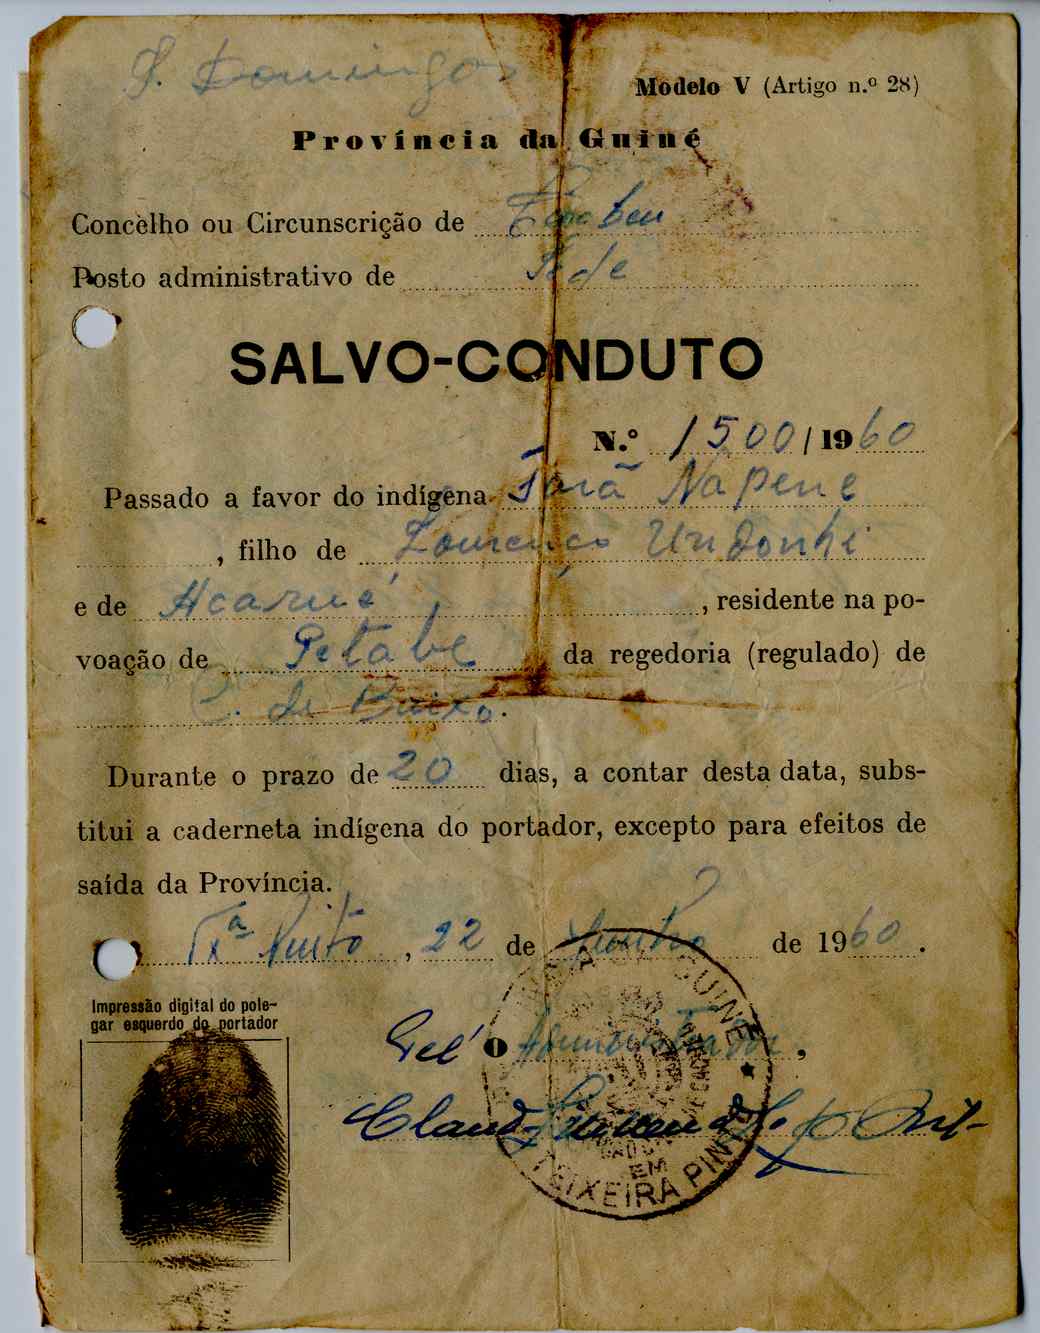 S. Domingos
Modelo V (Artigo n.º 28)
Província da Guiné
Concelho ou Circunscrição de
Posto administrativo de Séde
SALVO-CONDUTO
N.º 1500/1960
Passado a favor do indígena Nápene
, filho de Lourenço Undonhi
e de Acarué, residente na po-
voação de Petabe da regedoria (regulado) de
C. de Baixo.
Durante o prazo de 20 dias, a contar desta data, subs-
titui a caderneta indígena do portador, excepto para efeitos de
saída da Província.
Txª Pinto, 22 de de 1960.
Impressão digital do pole-
gar esquerdo do portador
Pel' O Administrador,
GUINÉ
EM
TEIXEIRA PINTO